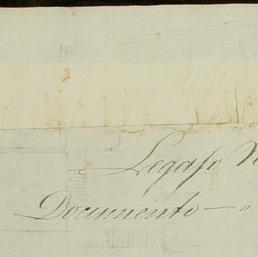 Legajo N
Documento — "